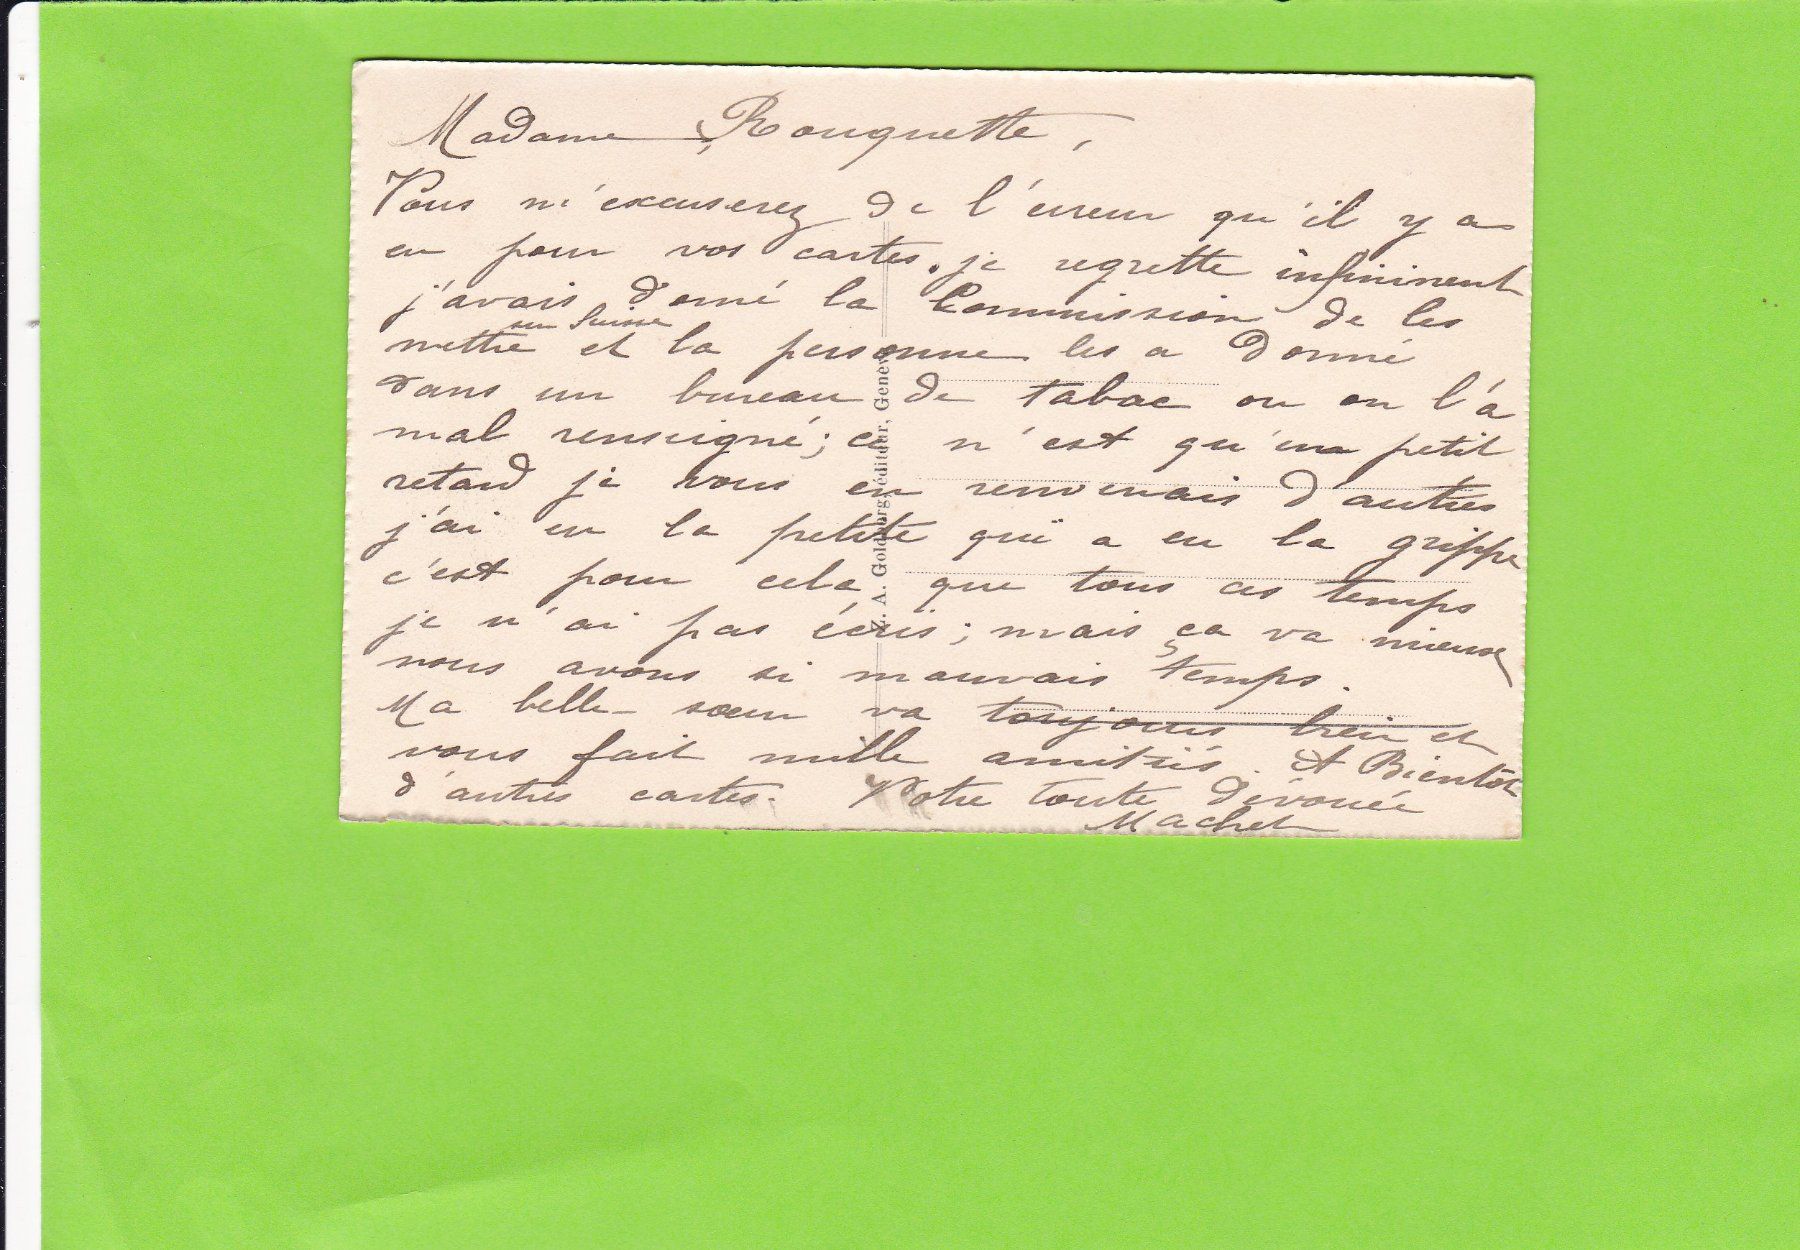 Madame Rouquette,
Vous m'excuserez de l'éreur qu'il y a
eu pour vos cartes. je regrette infiniment
j'avais donné la Commission de les
en Suisse
mettre et la personne les a donné
dans un bureau de tabac ou on l'a
mal renseigné; ce n'est qu'un petit
retard je vous en renverrais d'autres
j'ai eu la petite qui a eu la grippe
c'est pour cela que tous ces temps
je n'ai pas écris; mais ça va mieux
nous avons si mauvais temps.
Ma belle-sœur va toujours bien et
vous fait mille amitiés. A Bientôt
d'autres cartes. Votre toute dévouée
Machet
Z. A. Goldbourg, éditeur, Genève